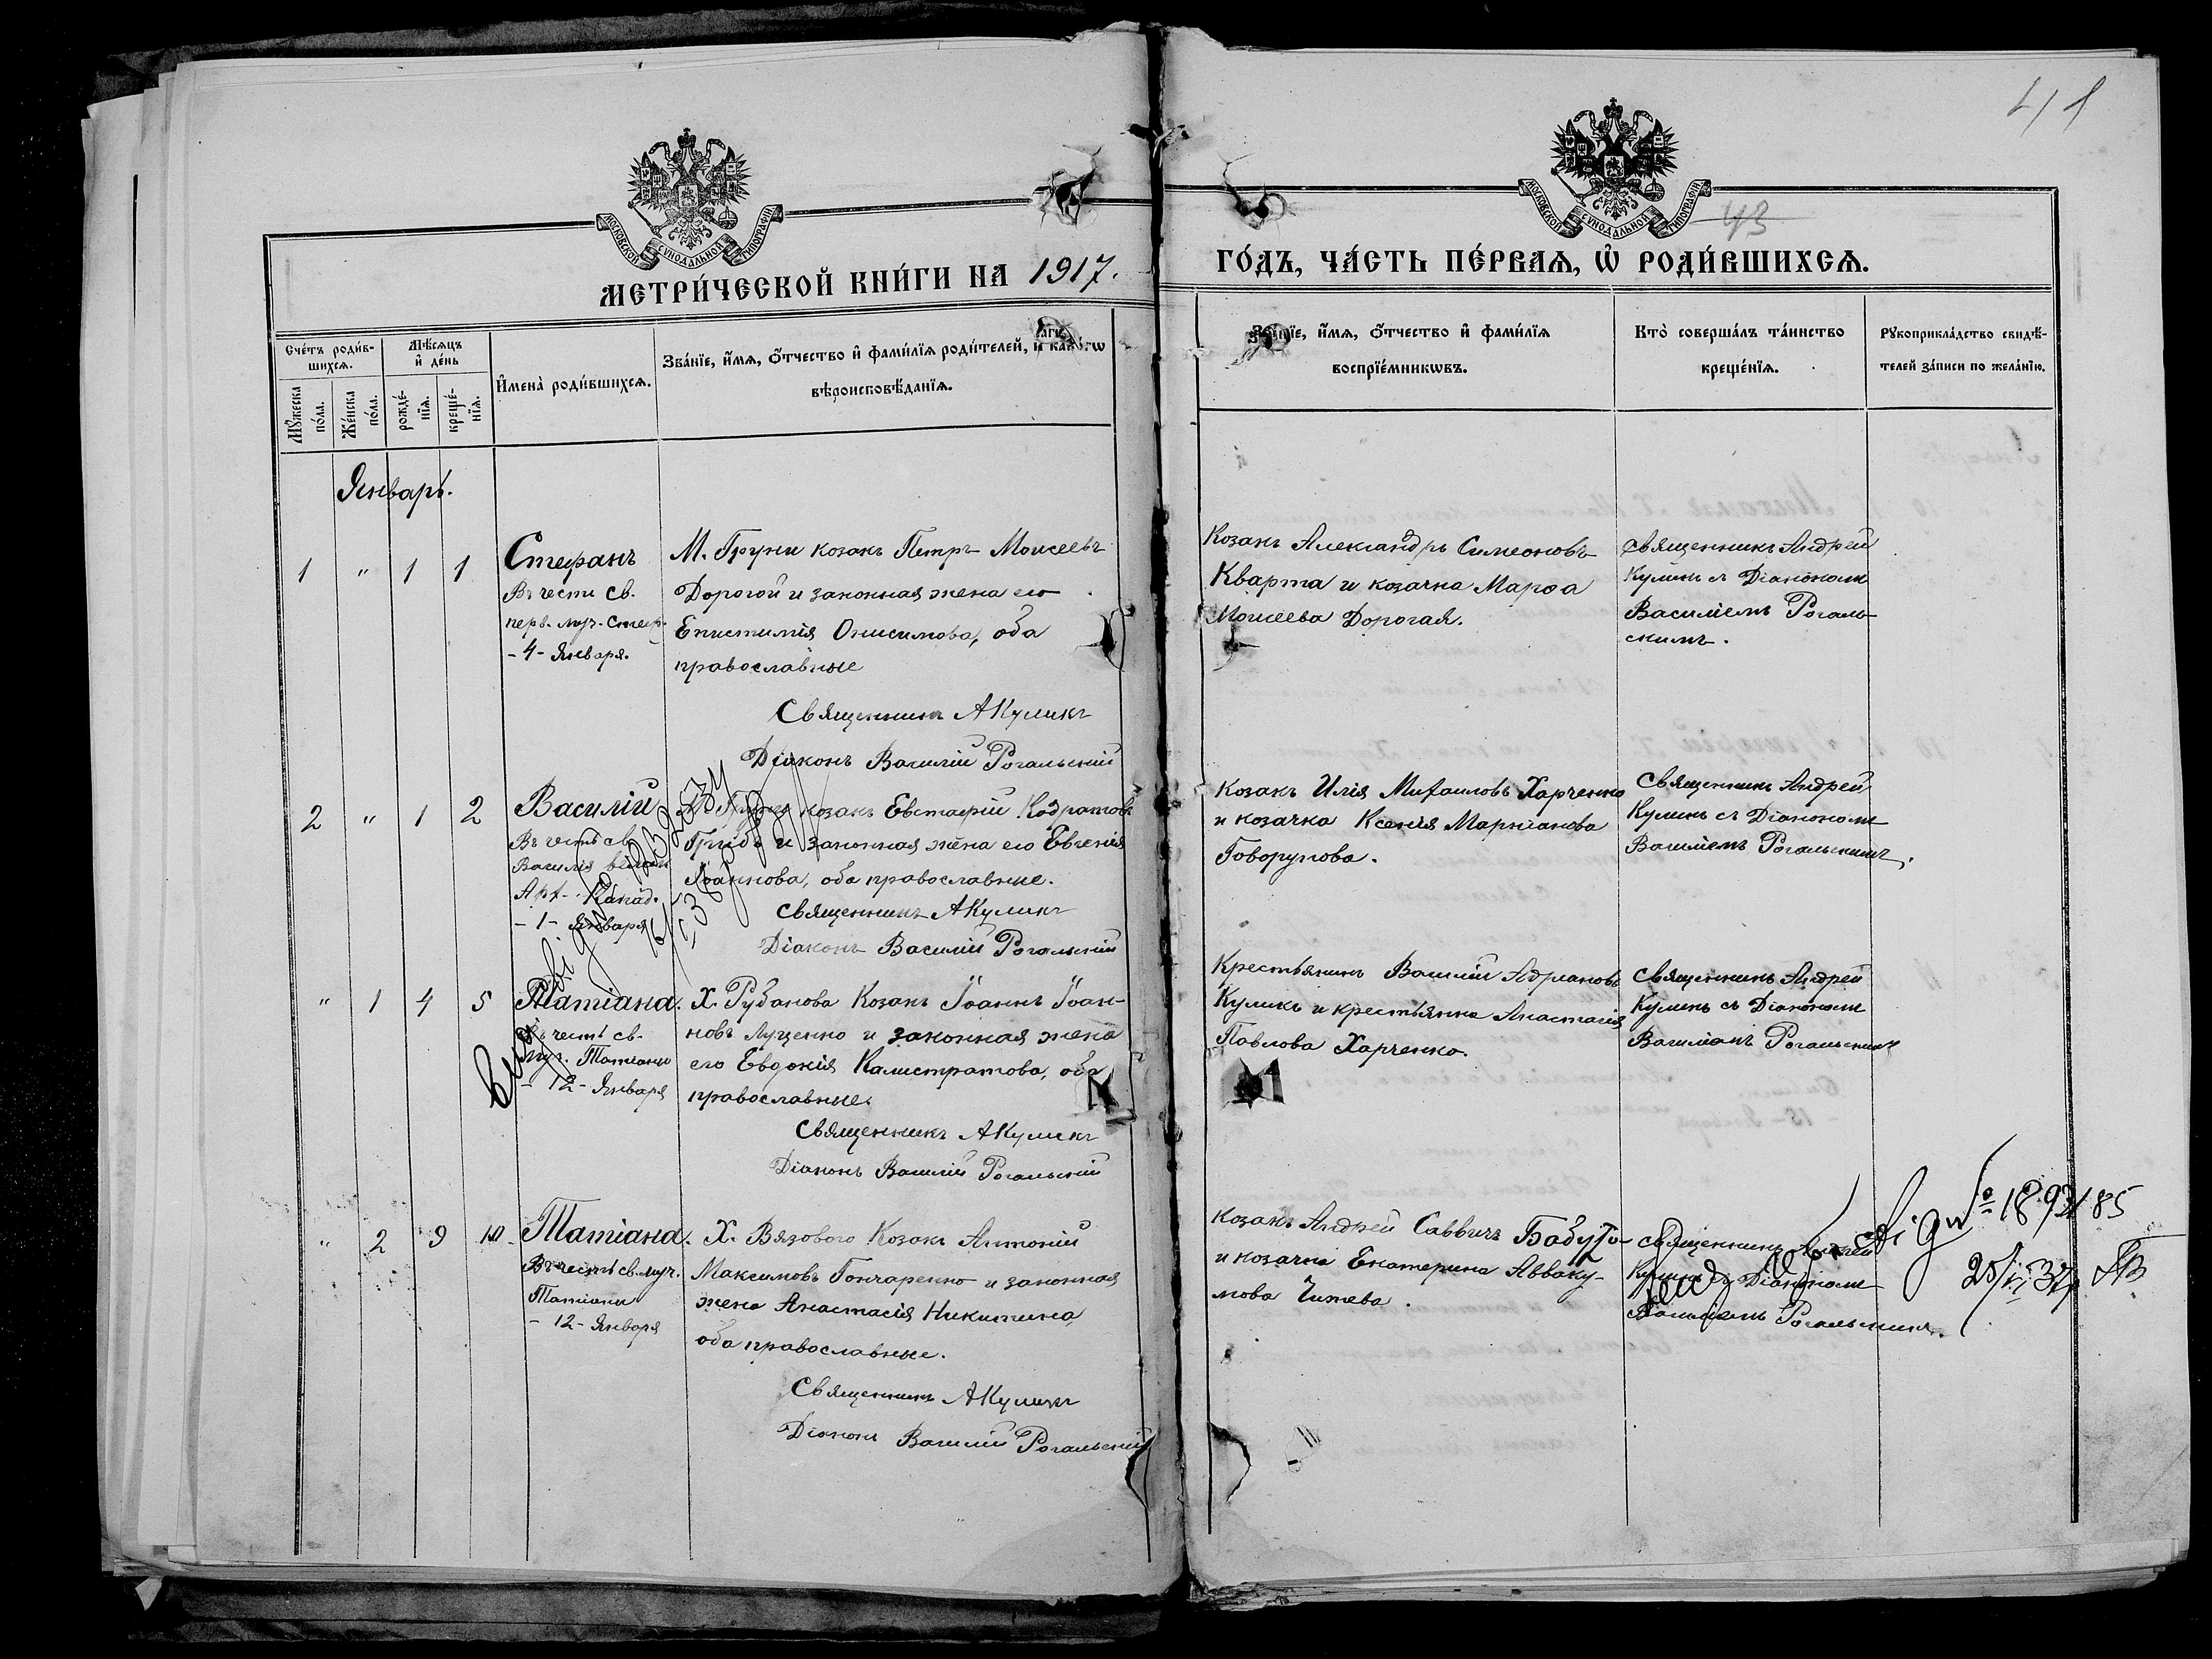 41
МОСКОВСКОЙ СѴНОДАЛЬНОЙ ТИПОГРАФІИ
МОСКОВСКОЙ СѴНОДАЛЬНОЙ ТИПОГРАФІИ
43
МЕТРИ́ЧЕСКОЙ КНИ́ГИ НА 1917.
ГО́ДЪ, ЧА́СТЬ ПЕ́РВАЯ, Ѡ҆ РОДИ́ВШИХСЯ.
Сче́тъ роди́в-
шихся.
Мѣ́сяцъ
и҆ де́нь
Му́жеска
по́ла.
Же́нска
по́ла.
рожде́-
нїя.
креще́-
нїя.
И҆мена̀ роди́вшихся.
Зва́нїе, и҆́мя, ѻ҆́тчество и҆ фами́лїя роди́телей, и҆
вѣроисповѣ́данїя.
и҆́мя, ѻ҆́тчество и҆ фами́лїя
воспрїе́мниковъ.
Кто̀ соверша́лъ та́инство
креще́нїя.
Рꙋкоприкла́дство свидѣ́-
телей за́писи по жела́нїю.
Январь.
1 " 1 1
Стефанъ
Въ чести св.
перв. муч. Стеф.
- 4 - Января.
М. Груни козакъ Петръ Моисеевъ
Дорогой и законная жена его
Епистимія Онисимова, оба
православные
Священникъ А Куликъ
Діаконъ Василій Рогальскій
Козакъ Александръ Симеоновъ
Кварта и козачка Марѳа
Моисеева Дорогая.
Священникъ Андрей
Куликъ съ Діакономъ
Василіемъ Рогаль-
скимъ.
2 " 1 2
Василій
Въ честь св.
Василія
Арх.
- 1 - Января
козакъ Евстафій
и законная жена его Евгенія
Іоаннова, оба православные.
Священникъ А Куликъ
Діаконъ Василій Рогальскій
Козакъ Илія Михаиловъ Харченко
и козачка Ксенія Маркіанова
Говорунова.
Священникъ Андрей
Куликъ съ Діакономъ
Василіемъ Рогальскимъ.
" 1 4 5
Татіана.
Въ честь св.
муч. Татіаны
- 12 - Января
Х. Рубанова Козакъ Іоаннъ Іоан-
новъ Луценко и законная жена
его Евдокія Калистратова, оба
православные.
Священникъ А Куликъ
Діаконъ Василій Рогальскій
Крестьянинъ Василій Адріановъ
Куликъ и крестьянка Анастасія
Павлова Харченко.
Священникъ Андрей
Куликъ съ Діакономъ
Василіемъ Рогальскимъ
" 2 9 10
Татіана.
Въ честь св. муч.
Татіаны
- 12 - Января
Х. Вязового Козакъ Антоній
Максимовъ Гончаренко и законная
жена Анастасія Никитина,
оба православные.
Священникъ А Куликъ
Діаконъ Василій Рогальскій
Козакъ Андрей Саввичъ
и козачка Екатерина Авваку-
мова
Священникъ Андрей
Куликъ съ Діакономъ
Василіемъ Рогальскимъ.